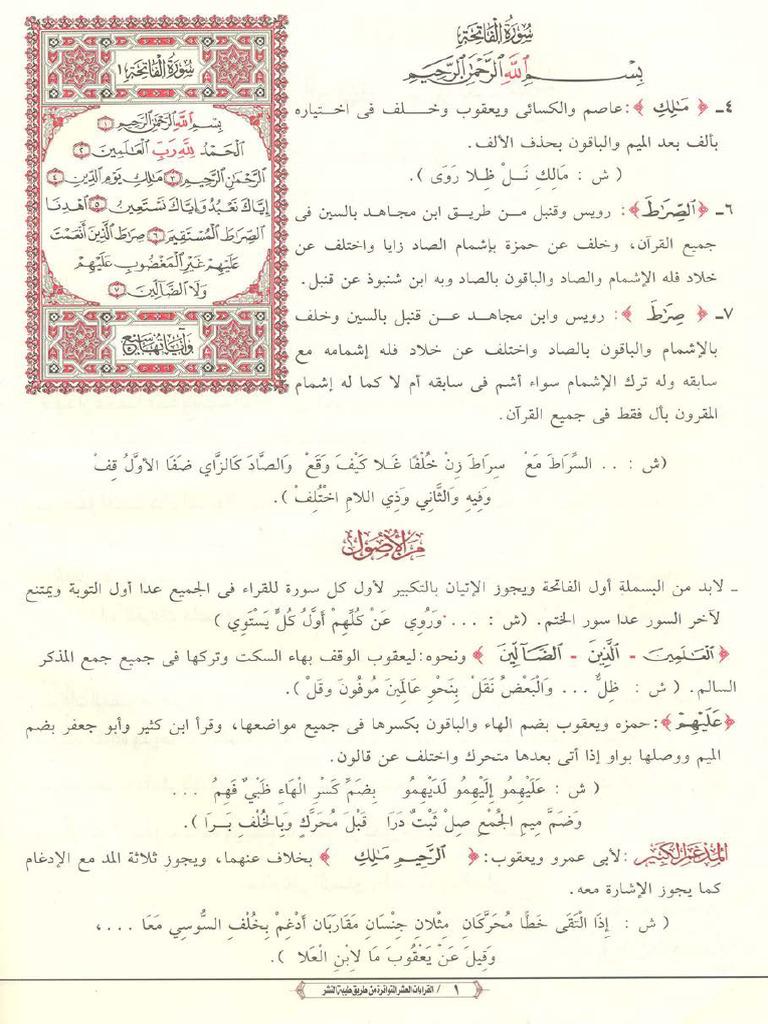 سُورَةُ الْفَاتِحَةِ
بِسْمِ اللَّهِ الرَّحْمَٰنِ الرَّحِيمِ
٤ـ ﴿ مَٰلِكِ ﴾: عاصم والكسائى ويعقوب وخلف فى اختياره
بألف بعد الميم والباقون بحذف الألف.
( ش : مَالِكِ نَـلْ ظِلا رَوَى ).
٦ـ ﴿الصِّرَٰطَ﴾: رويس وقنبل من طريق ابن مجاهد بالسين فى
جميع القرآن، وخلف عن حمزة بإشمام الصاد زايا واختلف عن
خلاد فله الإشمام والصاد والباقون بالصاد وبه ابن شنبوذ عن قنبل.
٧ـ ﴿ صِرَٰطَ ﴾: رويس وابن مجاهد عن قنبل بالسين وخلف
بالإشمام والباقون بالصاد واختلف عن خلاد فله إشمامه مع
سابقه وله ترك الإشمام سواء أشم فى سابقه أم لا كما له إشمام
المقرون بأل فقط فى جميع القرآن.
سُورَةُ الْفَاتِحَةِ ١
بِسْمِ اللَّهِ الرَّحْمَٰنِ الرَّحِيمِ ١
الْحَمْدُ لِلَّهِ رَبِّ الْعَٰلَمِينَ ٢
الرَّحْمَٰنِ الرَّحِيمِ ٣ مَٰلِكِ يَوْمِ الدِّينِ ٤
إِيَّاكَ نَعْبُدُ وَإِيَّاكَ نَسْتَعِينُ ٥ اهْدِنَا
الصِّرَٰطَ الْمُسْتَقِيمَ ٦ صِرَٰطَ الَّذِينَ أَنْعَمْتَ
عَلَيْهِمْ غَيْرِ الْمَغْضُوبِ عَلَيْهِمْ
وَلَا الضَّآلِّينَ ٧
وَآيَاتُهَا سَبْعٌ
(ش : .. السِّرَاطَ مَعْ سِرَاطَ زِنْ خُلْفًا غَلا كَيْفَ وَقَعْ وَالصَّادَ كَالزَّاي ضَفَا الأوَّلُ قِفْ
وَفِيهِ وَالثَّانِي وَذِي اللامِ اخْتُلِفْ ).
مِنَ الأُصُولِ
ـ لابد من البسملة أول الفاتحة ويجوز الإتيان بالتكبير لأول كل سورة للقراء فى الجميع عدا أول التوبة ويمتنع
لآخر السور عدا سور الختم. (ش : ... وَرُوِي عَنْ كُلِّهِمْ أَوَّلَ كُلٍّ يَسْتَوِي )
﴿الْعَٰلَمِينَ - الَّذِينَ - الضَّآلِّينَ ﴾ ونحوه: ليعقوب الوقف بهاء السكت وتركها فى جميع جمع المذكر
السالم. ( ش : ظِلٌّ ... وَالْبَعْضُ نَقَلْ بِنَحْوِ عَالَمِينَ مُوفُونَ وَقَلْ ).
﴿عَلَيْهِمْ﴾: حمزه ويعقوب بضم الهاء والباقون بكسرها فى جميع مواضعها، وقرأ ابن كثير وأبو جعفر بضم
الميم ووصلها بواو إذا أتى بعدها متحرك واختلف عن قالون.
( ش : عَلَيْهِمُو إِلَيْهِمُو لَدَيْهِمُو بِضَمِّ كَسْرِ الْهَاءِ ظَبْيٌ فَهِمُ ...
وَضَمَّ مِيمِ الْجَمْعِ صِلْ ثَبْتٌ دَرَا قَبْلَ مُحَرَّكٍ وَبِالْخُلْفِ بَـرَا ).
المدغم الكبير: لأبى عمرو ويعقوب: ﴿ الرَّحِيمِ مَٰلِكِ ﴾ بخلاف عنهما، ويجوز ثلاثة المد مع الإدغام
كما يجوز الإشارة معه.
( ش : إِذَا الْتَقَى خَطًّا مُحَرَّكَانِ مِثْلانِ جِنْسَانِ مَقَارِبَانِ أَدْغِمْ بِخُلْفِ السُّوسِي مَعَا ...،
وَقِيلَ عَنْ يَعْقُوبَ مَا لابْنِ الْعَلا ).
١ / القراءات العشر المتواترة من طريق طيبة النشر